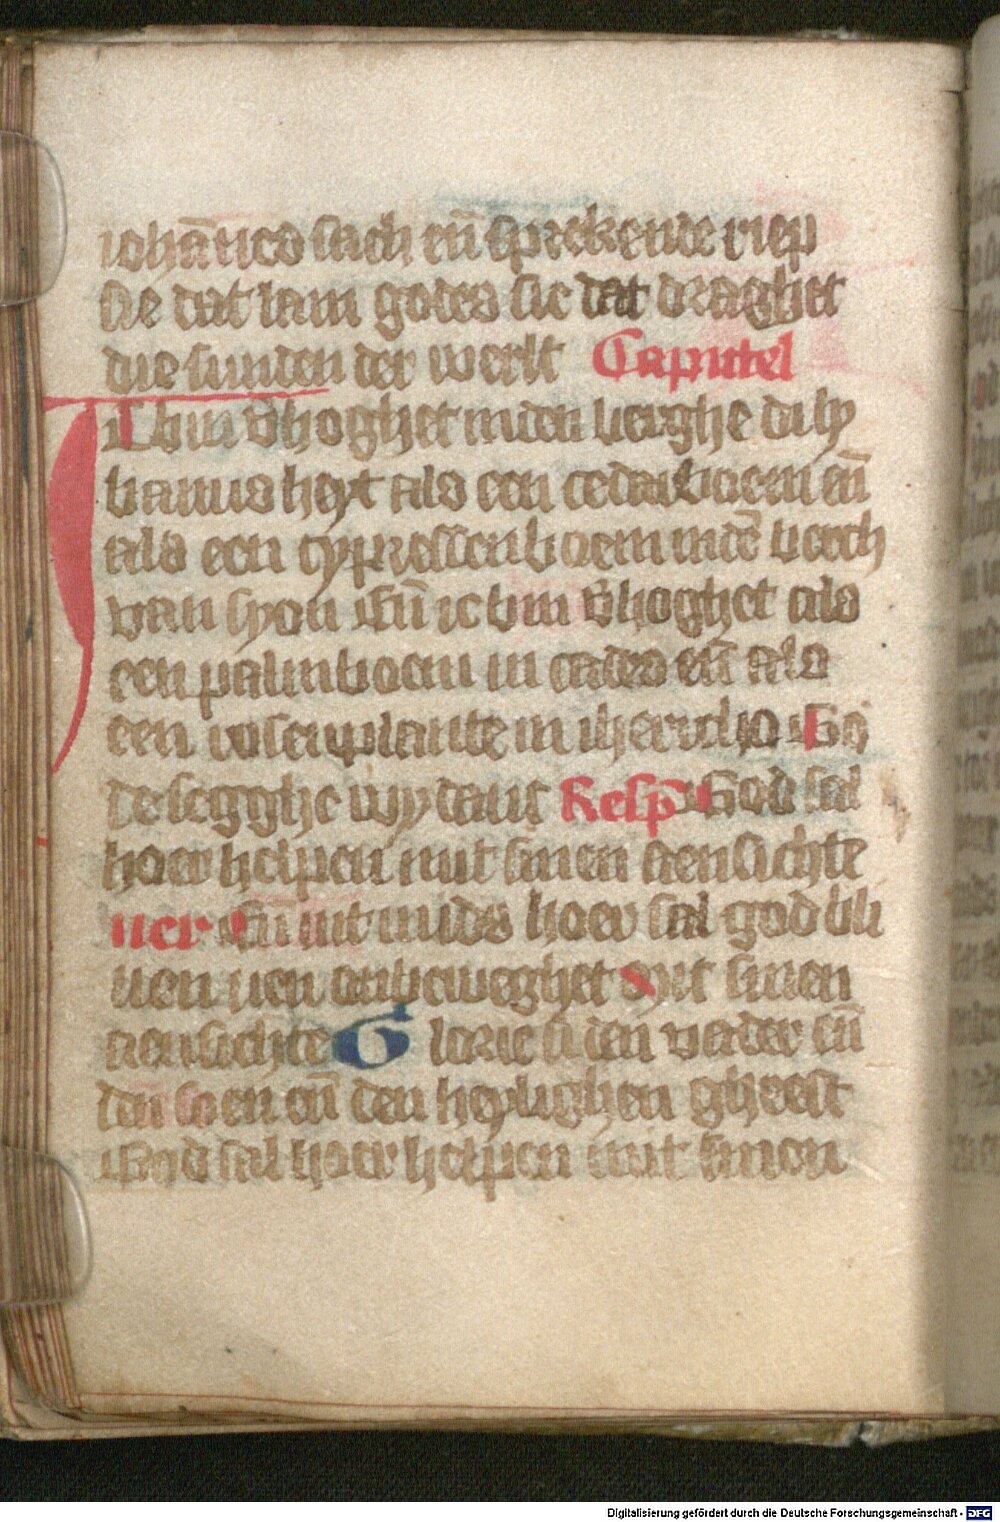 iohānes sach eñ sprekende riep
Se dat lam godes sie dat draghet
die sunden der werlt Capittel
Ic bin v̄hoghet inden berghe di ly
banus heyt als een cedarboem eñ
als een cypressenboem indē berch
van syon Eñ ic bin v̄hoghet als
een palmboem in cades eñ als
een rosenplante in iherycho Go
de segghe wy danc Resp̄ God sal
hoer helpen mit sinen aensichte
uer Eñ int mids hoer sal god bli
uen uen onbeweghet Mit sinen
aensichte Glorie si den vader eñ
den soen eñ den heylighen gheest
God sal hoer helpen mit sinen
Digitalisierung gefördert durch die Deutsche Forschungsgemeinschaft - DFG